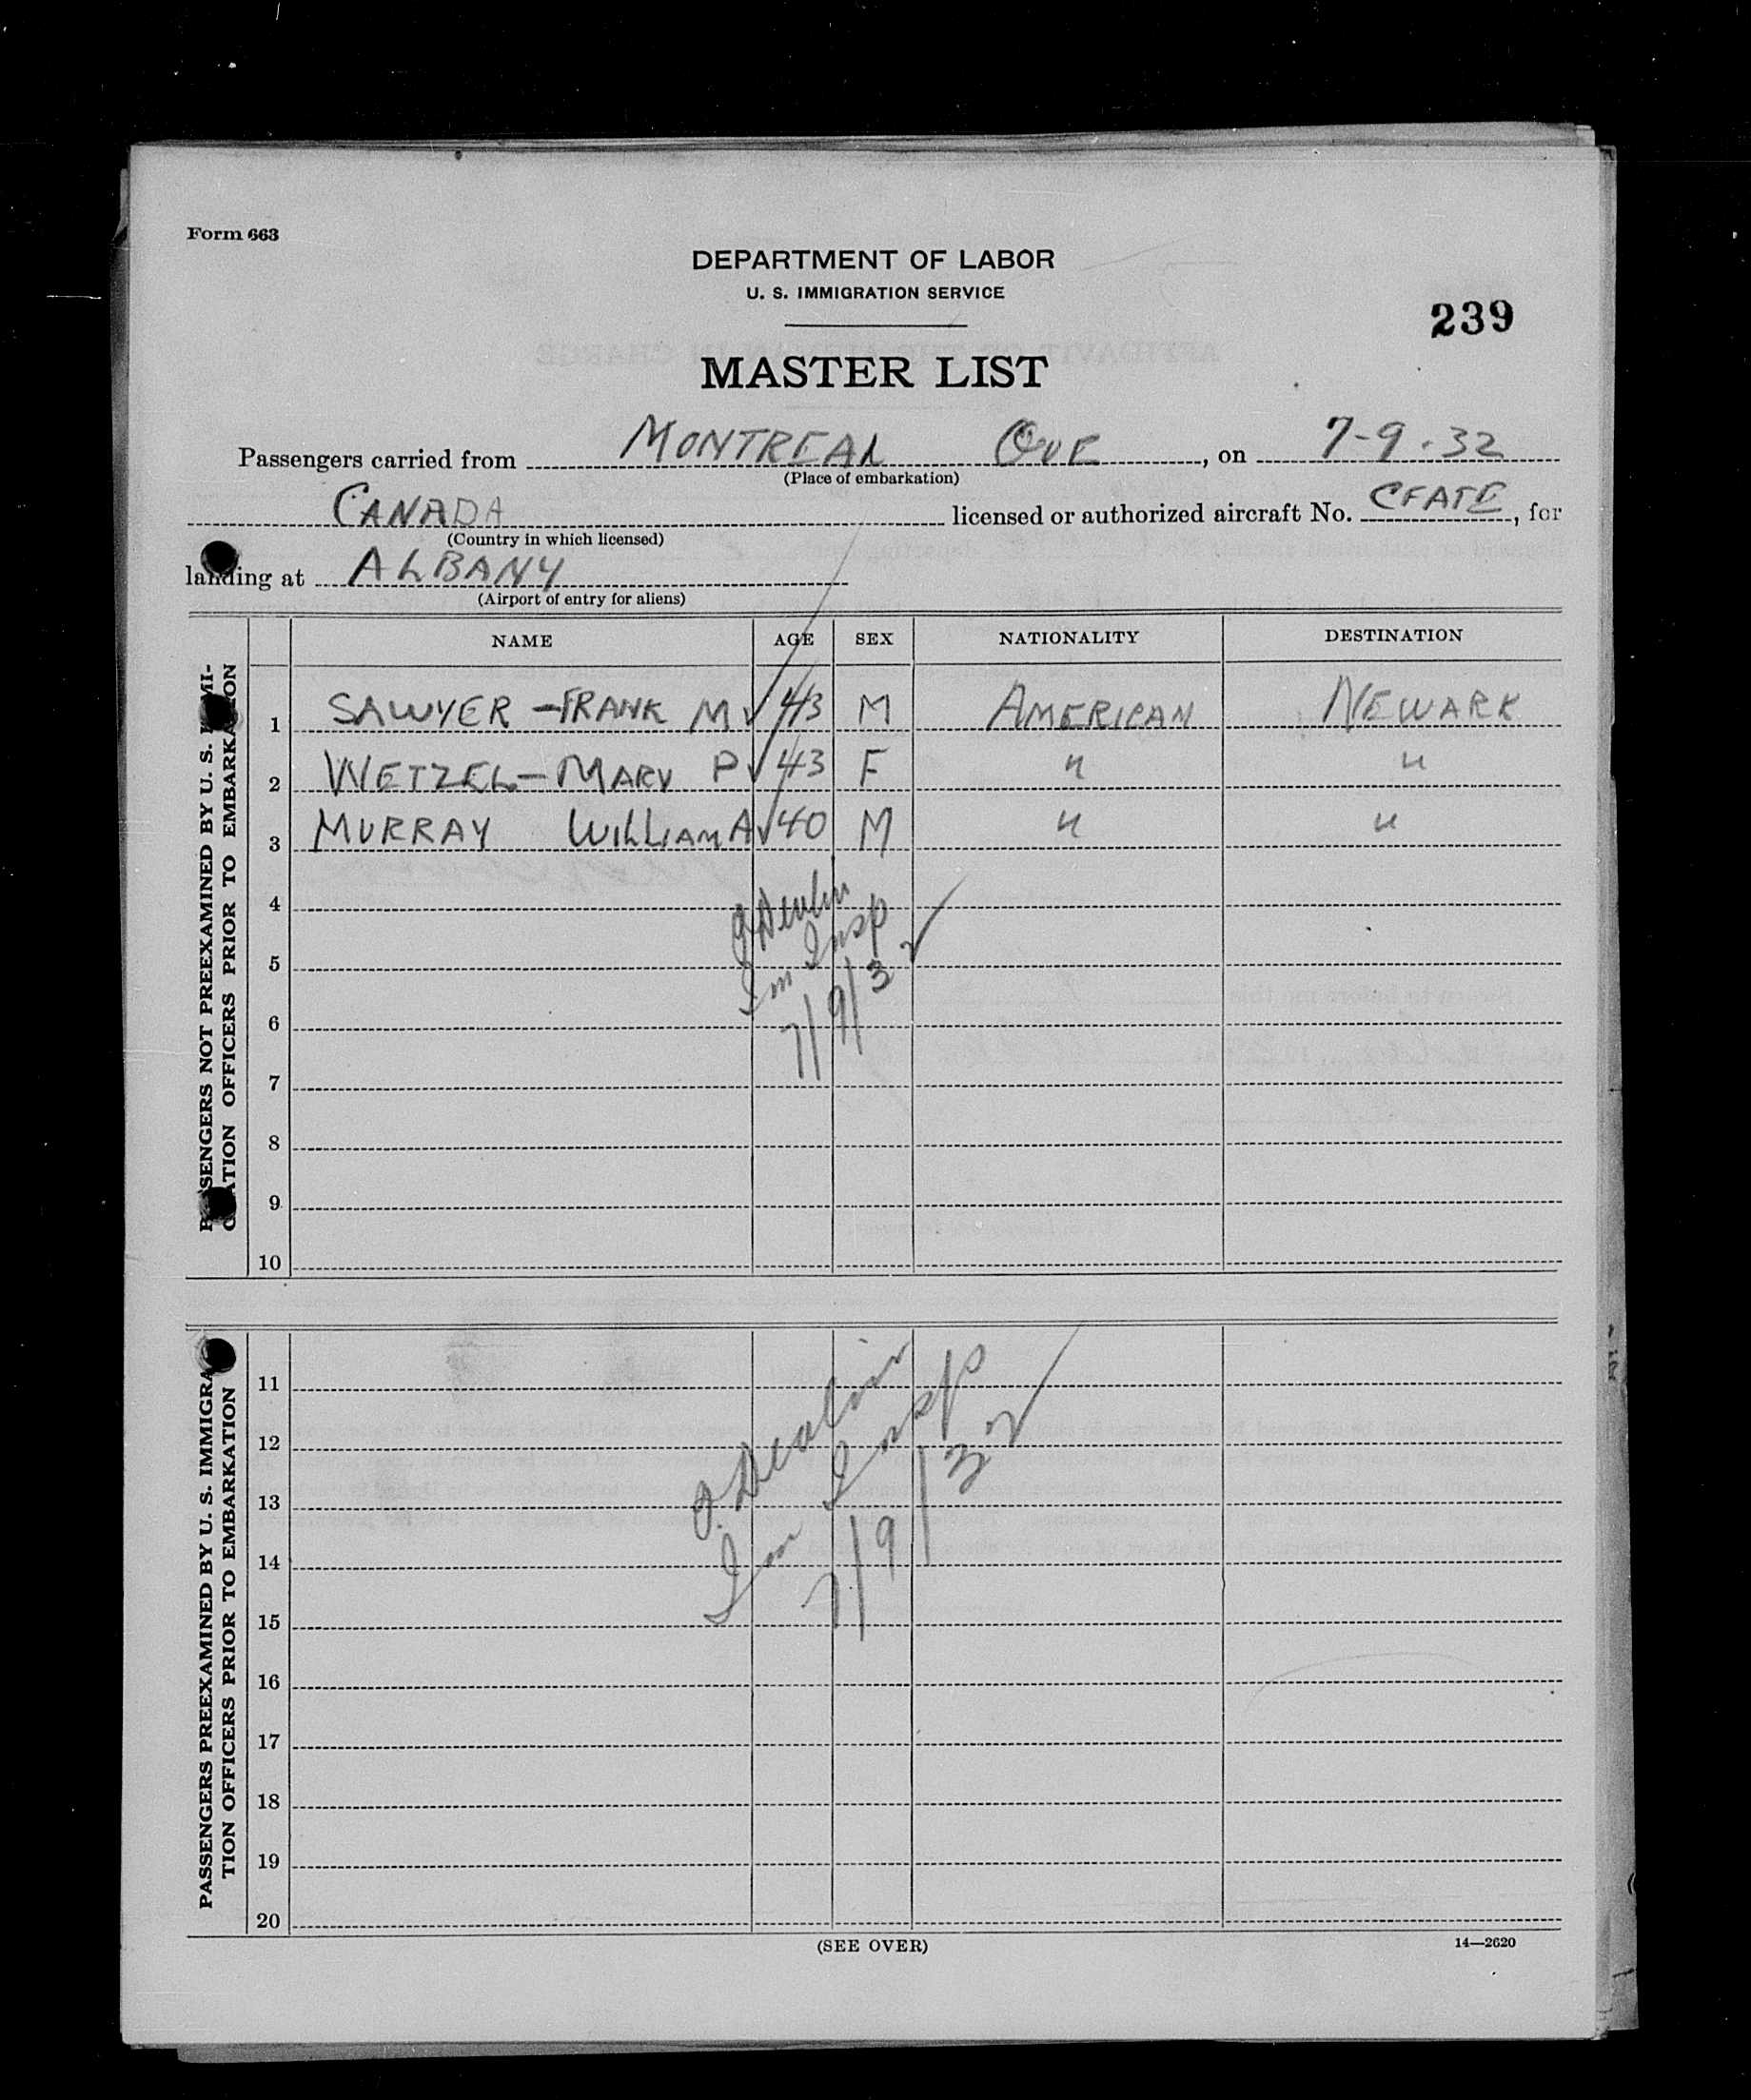 Form 663
DEPARTMENT OF LABOR
U. S. IMMIGRATION SERVICE
239
MASTER LIST
Passengers carried from MONTREAL QUE, on 7-9-32
(Place of embarkation)
CANADA licensed or authorized aircraft No. CFATE, for
(Country in which licensed)
landing at ALBANY
(Airport of entry for aliens)
NAME AGE SEX NATIONALITY DESTINATION
PASSENGERS NOT PREEXAMINED BY U. S. IMMI-
GRATION OFFICERS PRIOR TO EMBARKATION
1 SAWYER - FRANK M ✓ 43 M AMERICAN NEWARK
2 WETZEL - MARY P ✓ 43 F " "
3 MURRAY WILLIAM A ✓ 40 M " "
4
5
6
7
8
9
10
J Devlin
Im Insp
7/9/32
PASSENGERS PREEXAMINED BY U. S. IMMIGRA-
TION OFFICERS PRIOR TO EMBARKATION
11
12
13
14
15
16
17
18
19
20
J. Devlin
Im Insp
7/9/32
(SEE OVER)
14—2620